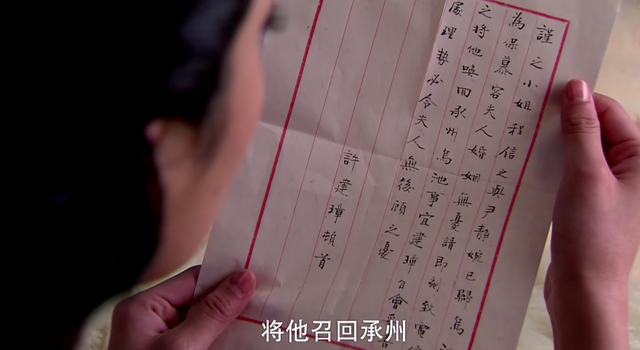 謹之小姐程信之與尹靜婉已歸烏
為保慕容夫人婚姻無憂請即刻致電
之將他喚回承州烏池事宜建璋自會
處理勢必令夫人無後顧之憂
許建璋頓首
将他召回承州